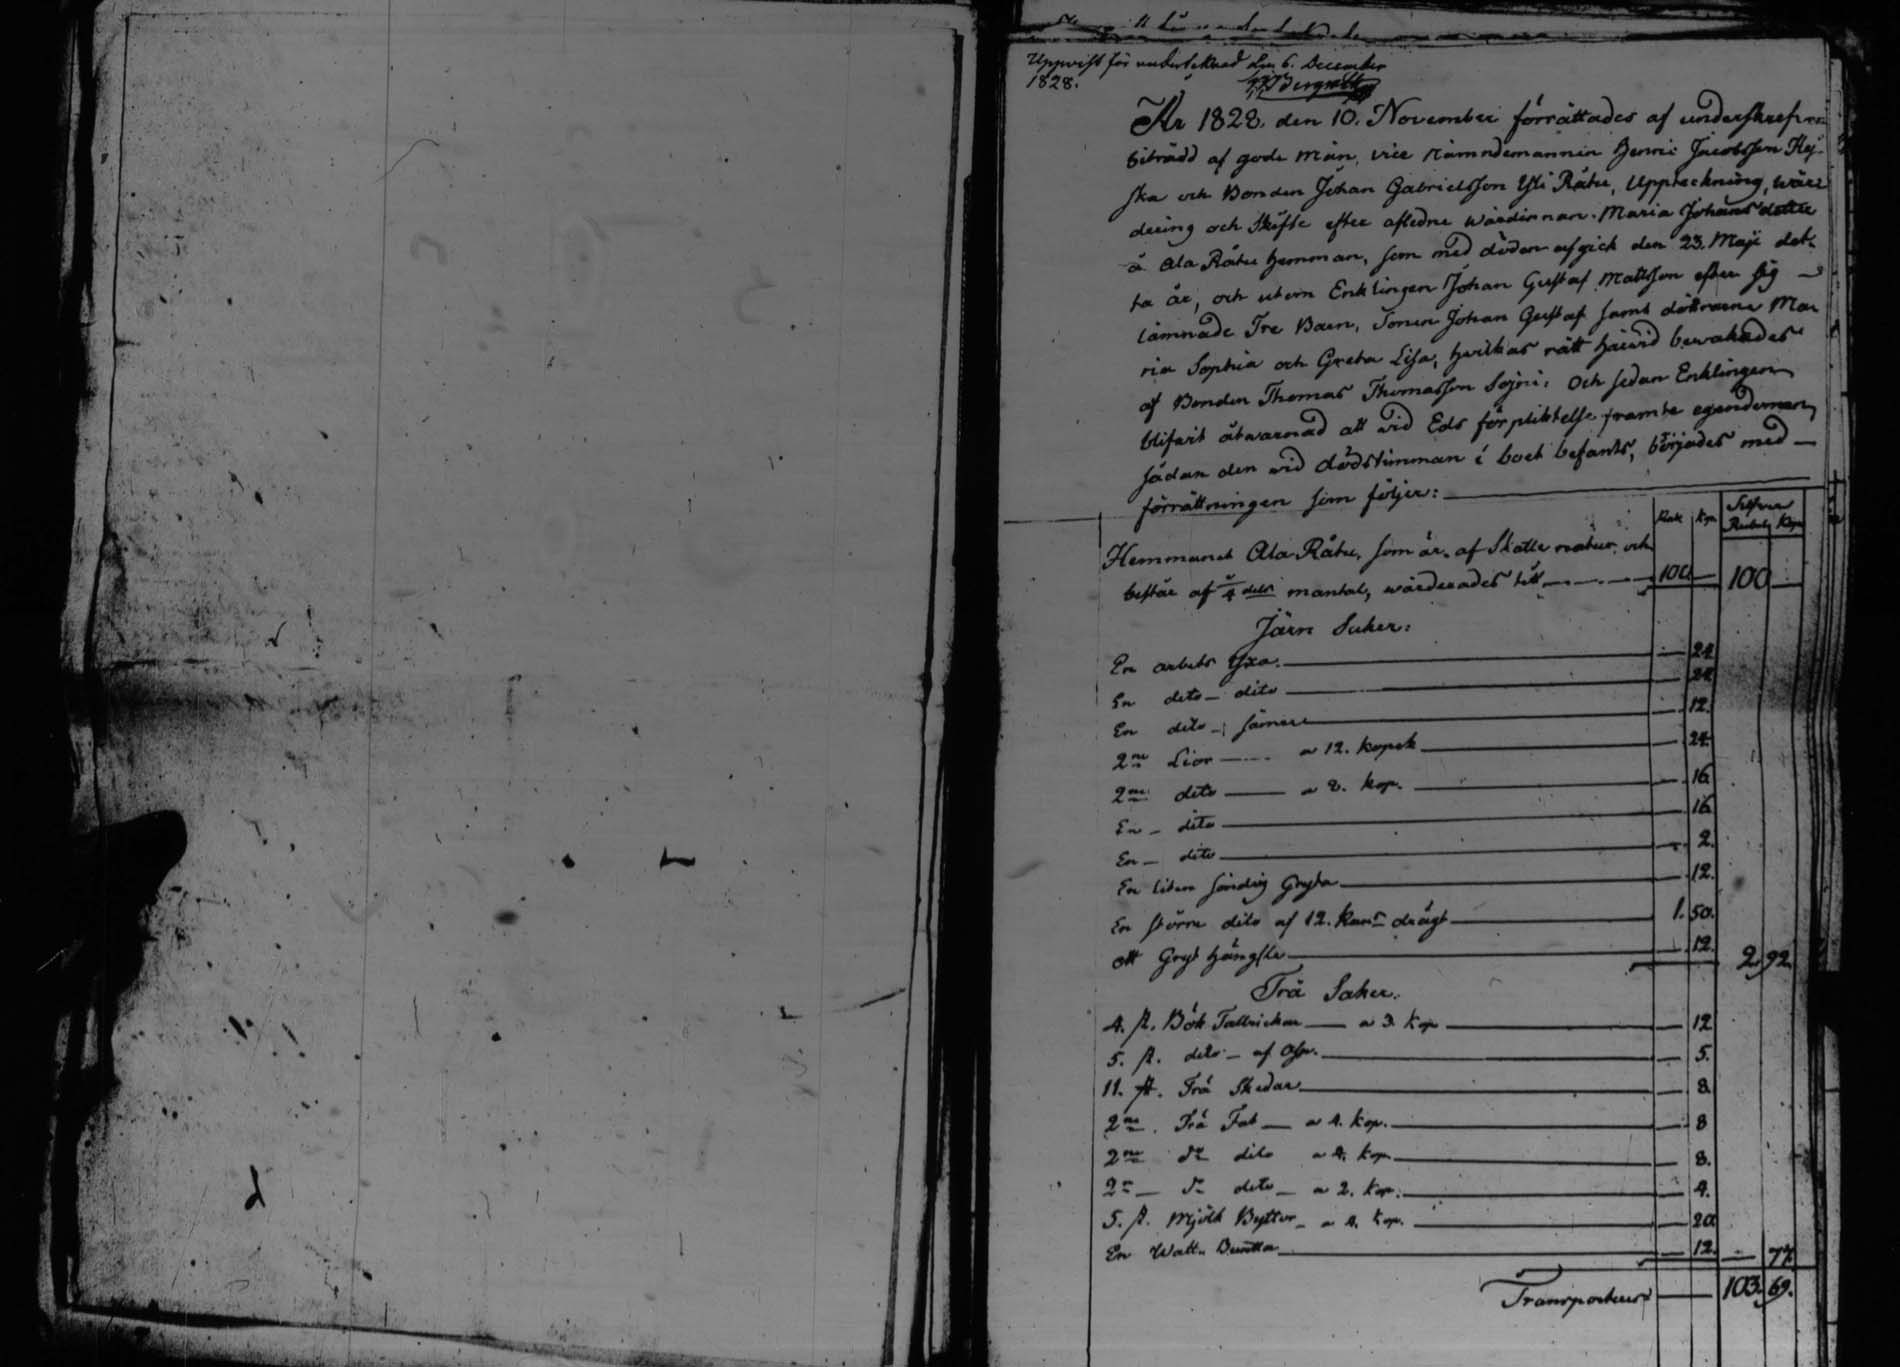 Uppvist för undertecknad den 6. December
1828.
År 1828. den 10. November förrättades af underskrefven
biträdd af gode män, vice nämndemannen Henric Jacobsson Kej-
ska och Bonden Johan Gabrielsson Yli Rätu, Uppteckning, wär-
dering och Skifte efter afledne wärdinnan Maria Johansdotter
å Ala Rätu hemman, som med döden afgick den 23. Maji det-
ta år, och utom Enklingen Johan Gustaf Mattsson efter sig
lämnade Tre Barn, Sonen Johan Gustaf samt döttrarne Ma
ria Sophia och Greta Lisa, hvilkas rätt härvid bewakades
af Bonden Thomas Thomasson Sojni: Och sedan Enklingen
blifvit åtwarnad att wid Eds förpliktelse framte egendomen
sådan den wid dödstimman i boet befants, börjades med
förrättningen som följer:
Rub. Kop. Silfver Rubel Kop.
Hemmanet Ala Rätu, som är af Skatte natur och
består af mantal, wärderades till 100 100
Järn Saker:
En arbets Yxa 24
En dito dito 24
En dito sämre 12.
2ne Lior a 12. kopek 24.
2ne dito a 8. kop. 16
En dito 16
En dito 2.
En liten söndrig Gryta 12.
En större dito af 12. kan:r drägt 1. 50.
ett Gryt hängsle 12 2. 92
Trä Saker.
4. st. Bök Tallrickar a 3. kop 12
5. st. dito af Asp. 5.
11. st. Trä Skedar 8
2ne Trä Fat a 4. kop. 8
2ne dito a 4. kop 8.
2ne dito a 2. kop. 4.
5. st. Mjölk Byttor a 4. kop. 20
En Watt. 12. 77
Transporteras 103. 69.